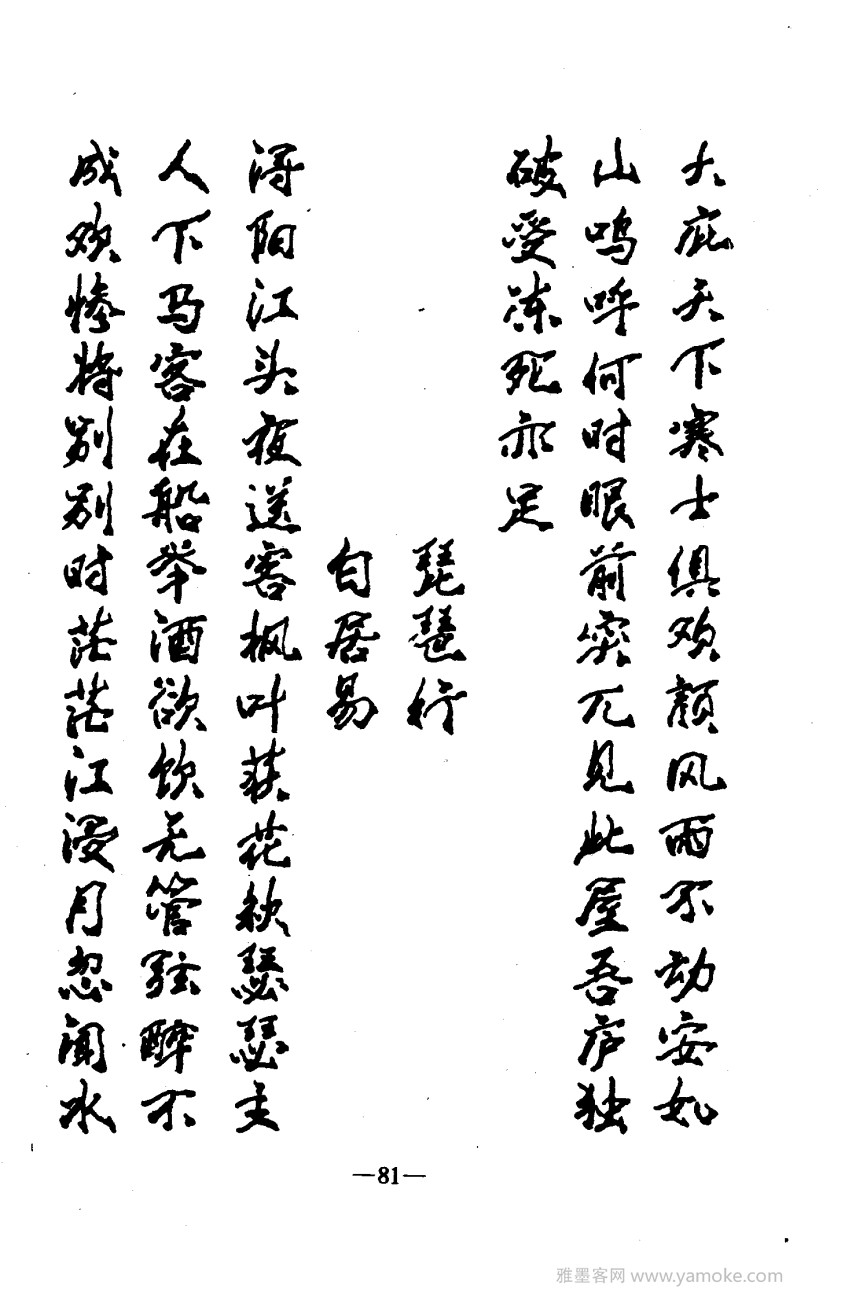 大庇天下寒士俱欢颜风雨不动安如
山呜呼何时眼前突兀见此屋吾庐独
破受冻死亦足
琵琶行
白居易
浔阳江头夜送客枫叶荻花秋瑟瑟主
人下马客在船举酒欲饮无管弦醉不
成欢惨将别别时茫茫江浸月忽闻水
—81—
雅墨客网 www.yamoke.com